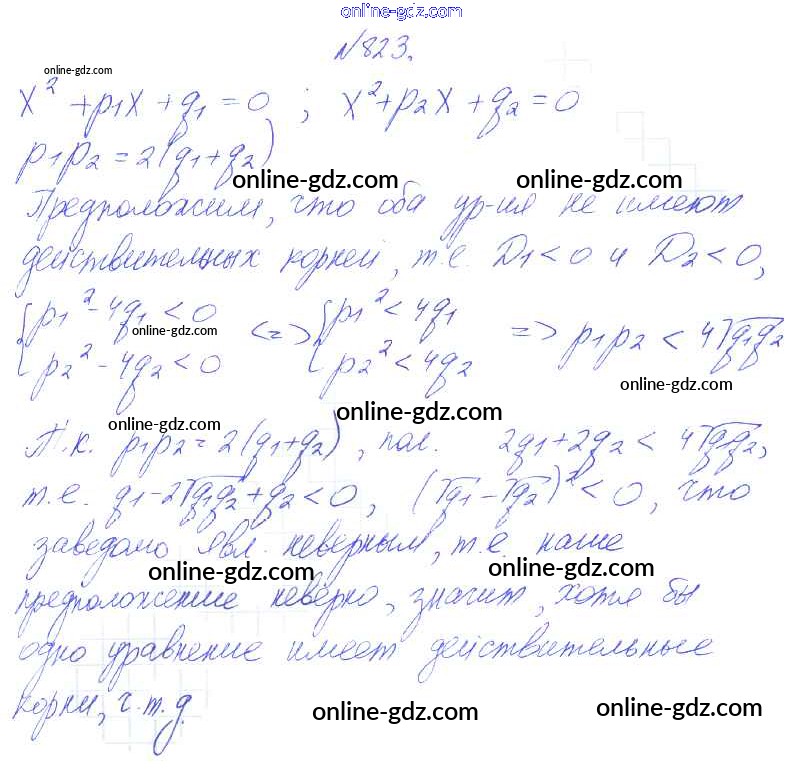 online-gdz.com
№823.
online-gdz.com
x² + p₁x + q₁ = 0 ; x² + p₂x + q₂ = 0
p₁p₂ = 2(q₁+q₂)
online-gdz.com online-gdz.com
Предположим, что оба ур-ия не имеют
действительных корней, т.е. D₁ < 0 и D₂ < 0,
{p₁² - 4q₁ < 0 <=> {p₁² < 4q₁ => p₁p₂ < 4√q₁q₂
online-gdz.com
{p₂² - 4q₂ < 0 {p₂² < 4q₂
online-gdz.com
online-gdz.com
online-gdz.com
Т.к. p₁p₂ = 2(q₁+q₂), пол. 2q₁+2q₂ < 4√q₁q₂,
т.е. q₁-2√q₁q₂+q₂ < 0, (√q₁-√q₂)² < 0, что
заведомо явл. неверным, т.е. наше
online-gdz.com online-gdz.com
предположение неверно, значит, хотя бы
одно уравнение имеет действительные
корни, ч.т.д.
online-gdz.com online-gdz.com